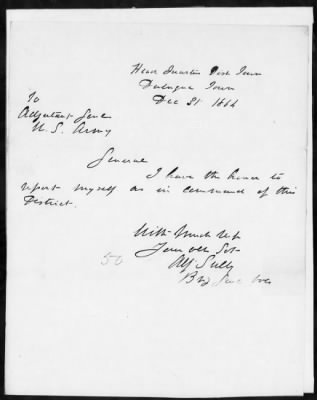 Head Quarters Dist Iowa
Dubuque Iowa
Dec 31 1864
To
Adjutant Genl
U.S. Army
General
I have the honor to
report myself as in command of this
District.
With Much Rspt
Your obt Svt
Alf Sully
Brig Genl Vols
50